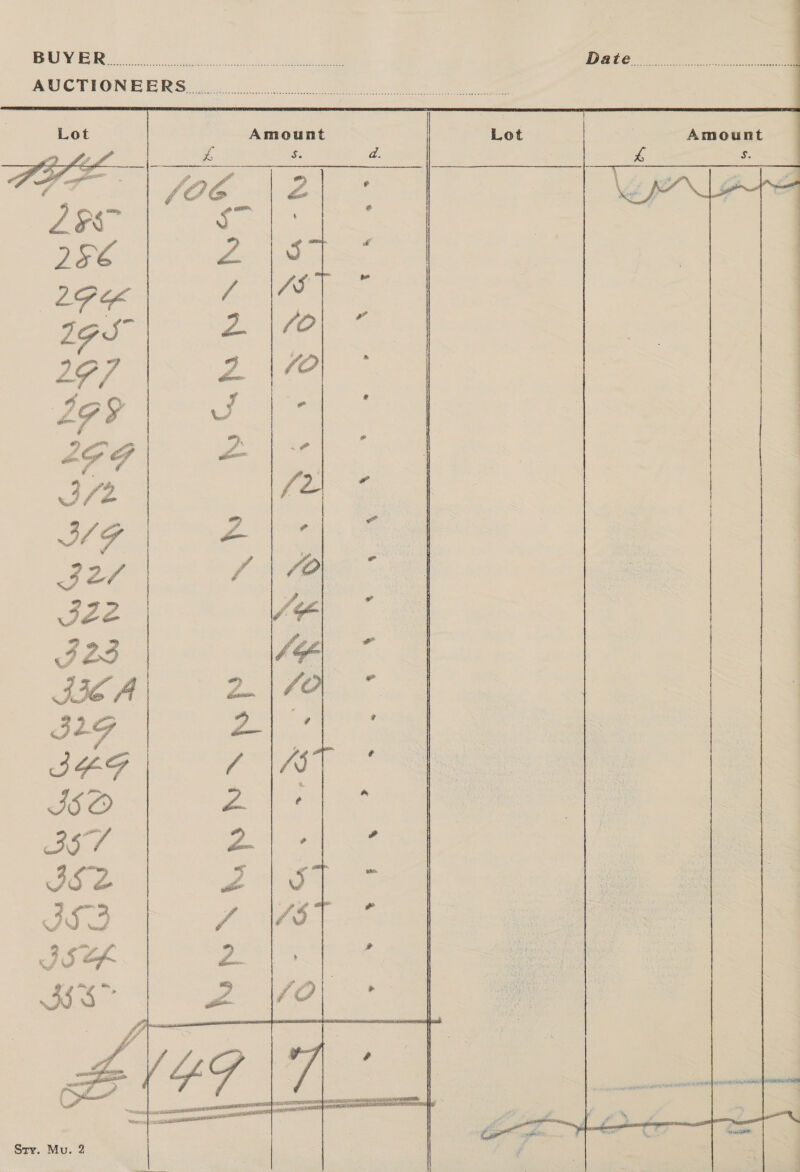 BUYER Date
AUCTIONEERS
Lot Amount Lot Amount
£ s. d. £ s.
106 2 "
285 5 " "
286 2 5 "
294 1 15 "
295 2 10 "
297 2 10 "
298 3 " "
299 2 " "
312 12 "
319 2 " "
321 1 10 "
322 14 "
323 14 "
336 A 2 10 "
329 2 " "
349 1 15 "
350 2 " "
351 2 " "
352 2 5 "
353 1 15 "
354 2 " "
355 2 10 "
£149 7 "
Sty. Mu. 2